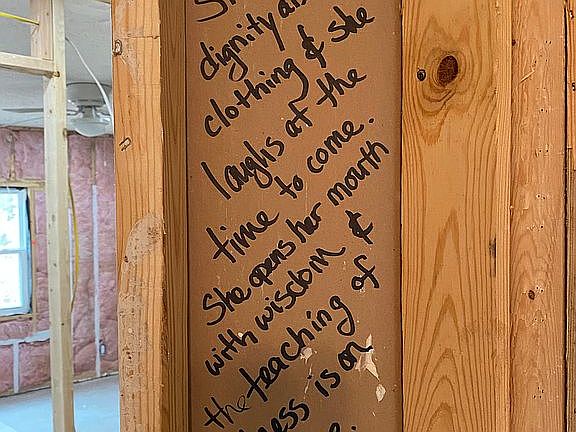 dignity a
clothing & she
laughs at the
time to come.
She opens her mouth
with wisdom &
the teaching of
ness is on